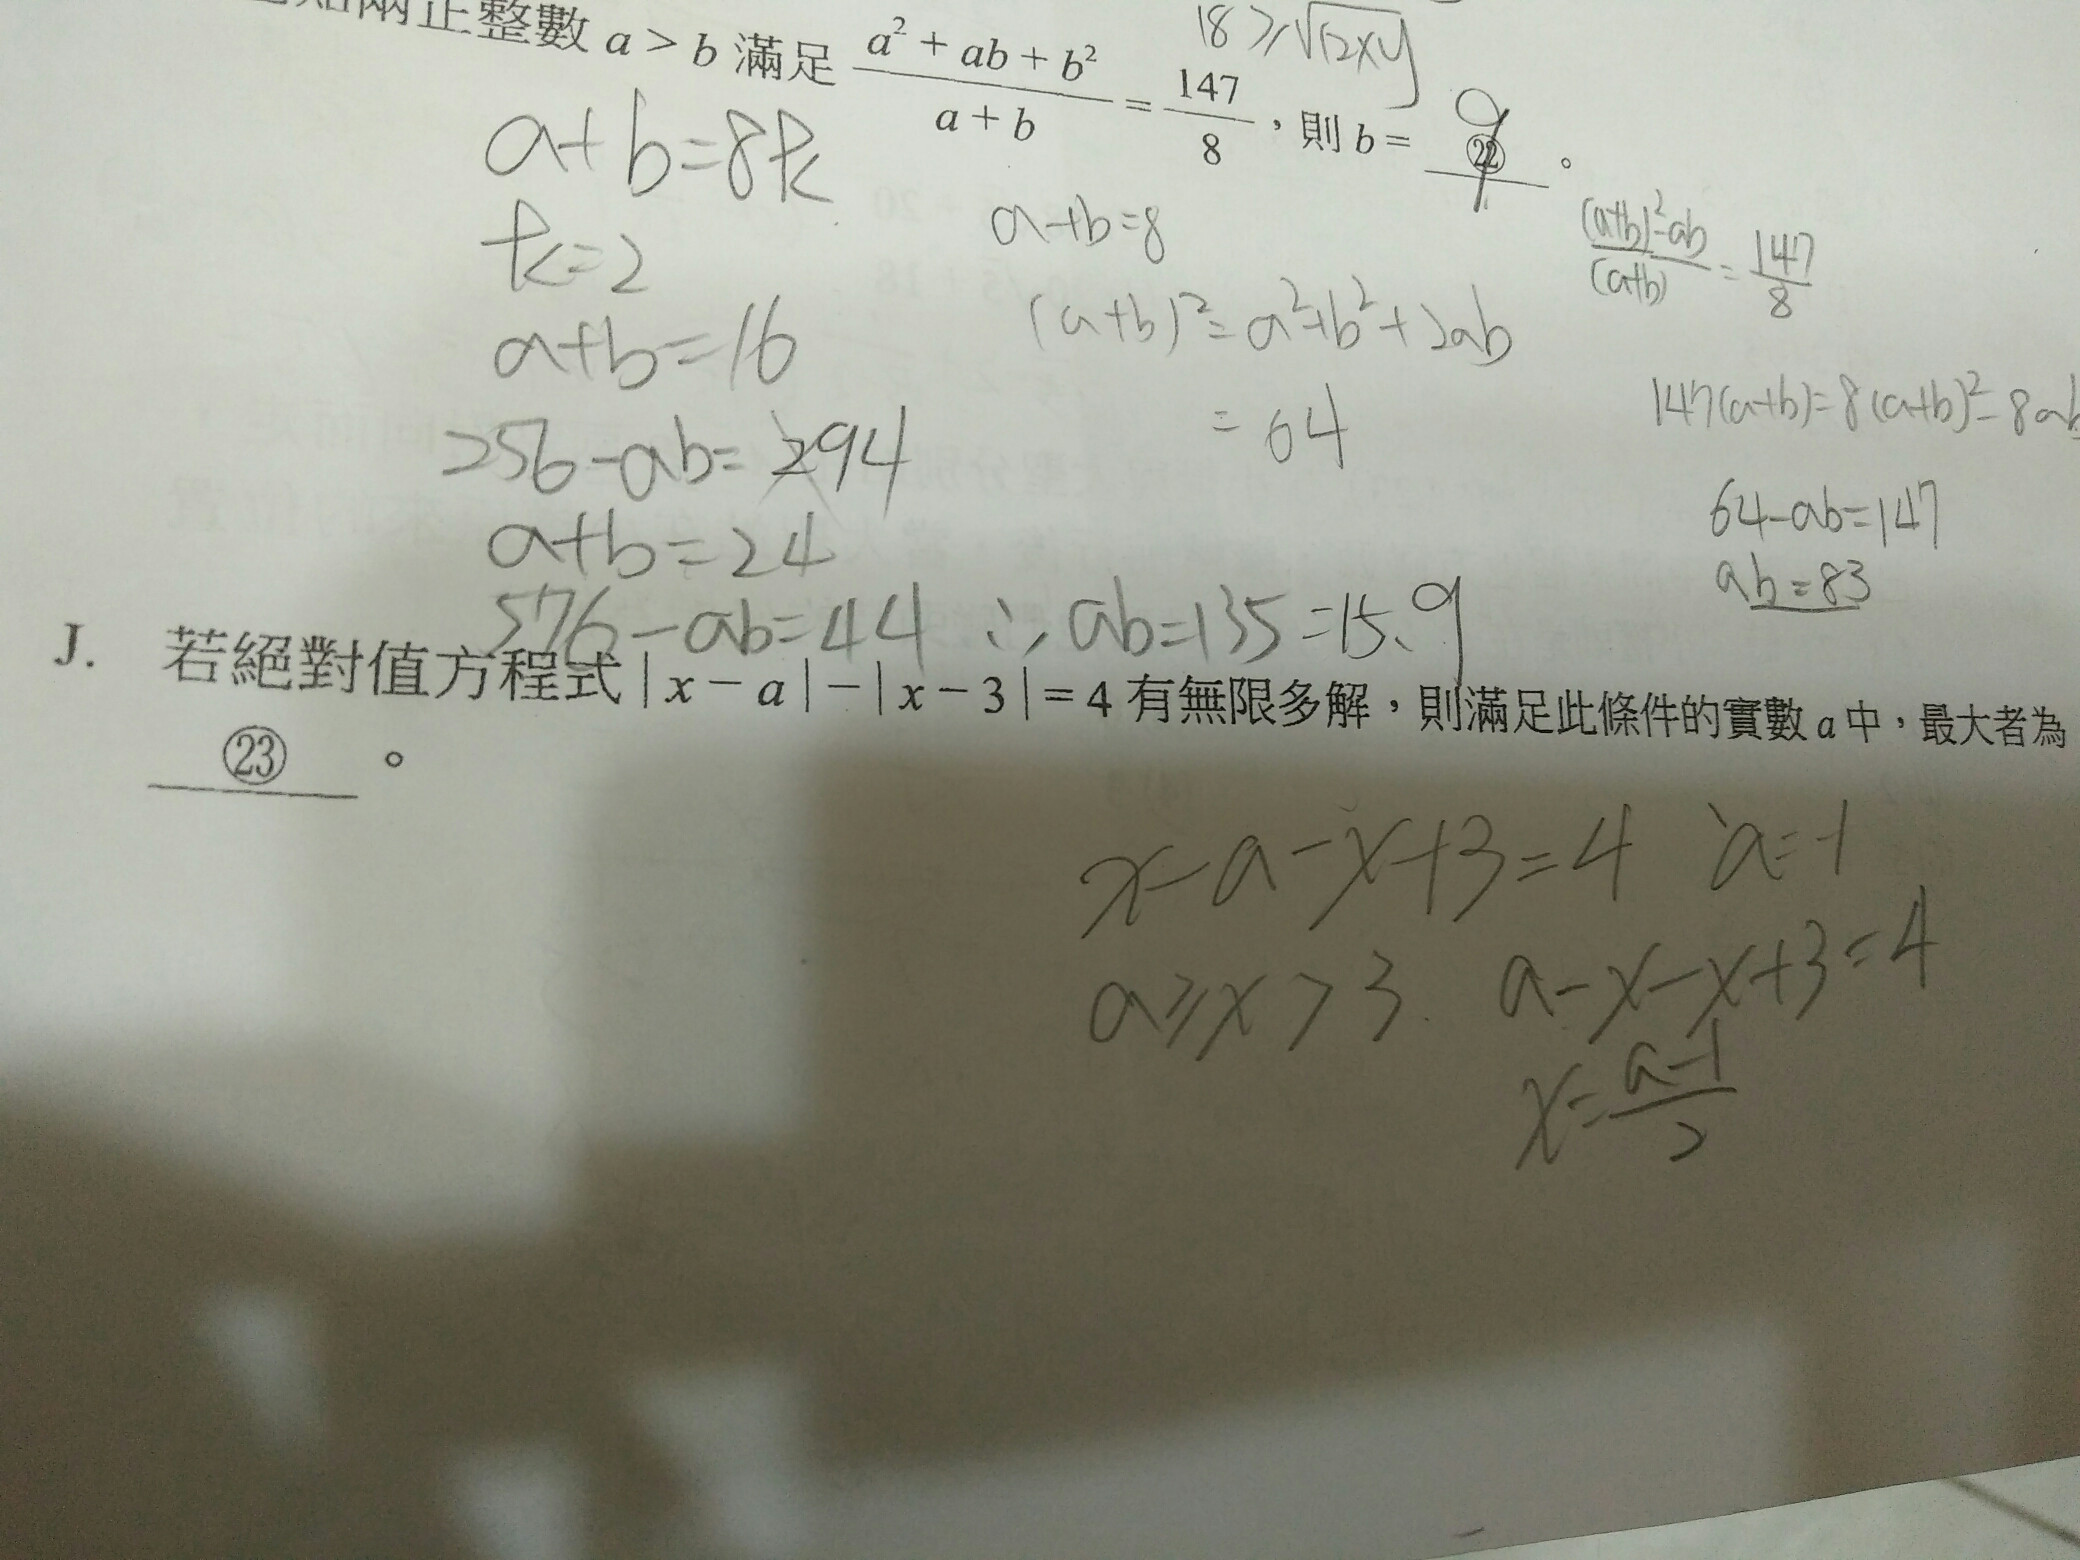 兩正整數 a > b 滿足 (a² + ab + b²)/(a + b) = 147/8，則 b = 9 ㉒ 。
18 ≥ √12xy
a+b=8k
k=2
a+b=16
256-ab=294
a+b=24
576-ab=441 ∴ ab=135=15、9
a+b=8
(a+b)²=a²+b²+2ab
=64
((a+b)²-ab)/(a+b) = 147/8
147(a+b)=8(a+b)²-8ab
64-ab=147
ab=83
J. 若絕對值方程式 | x − a | − | x − 3 | = 4 有無限多解，則滿足此條件的實數 a 中，最大者為
㉓ 。
x-a-x+3=4 a=-1
a≥x>3 a-x-x+3=4
x=(a-1)/2